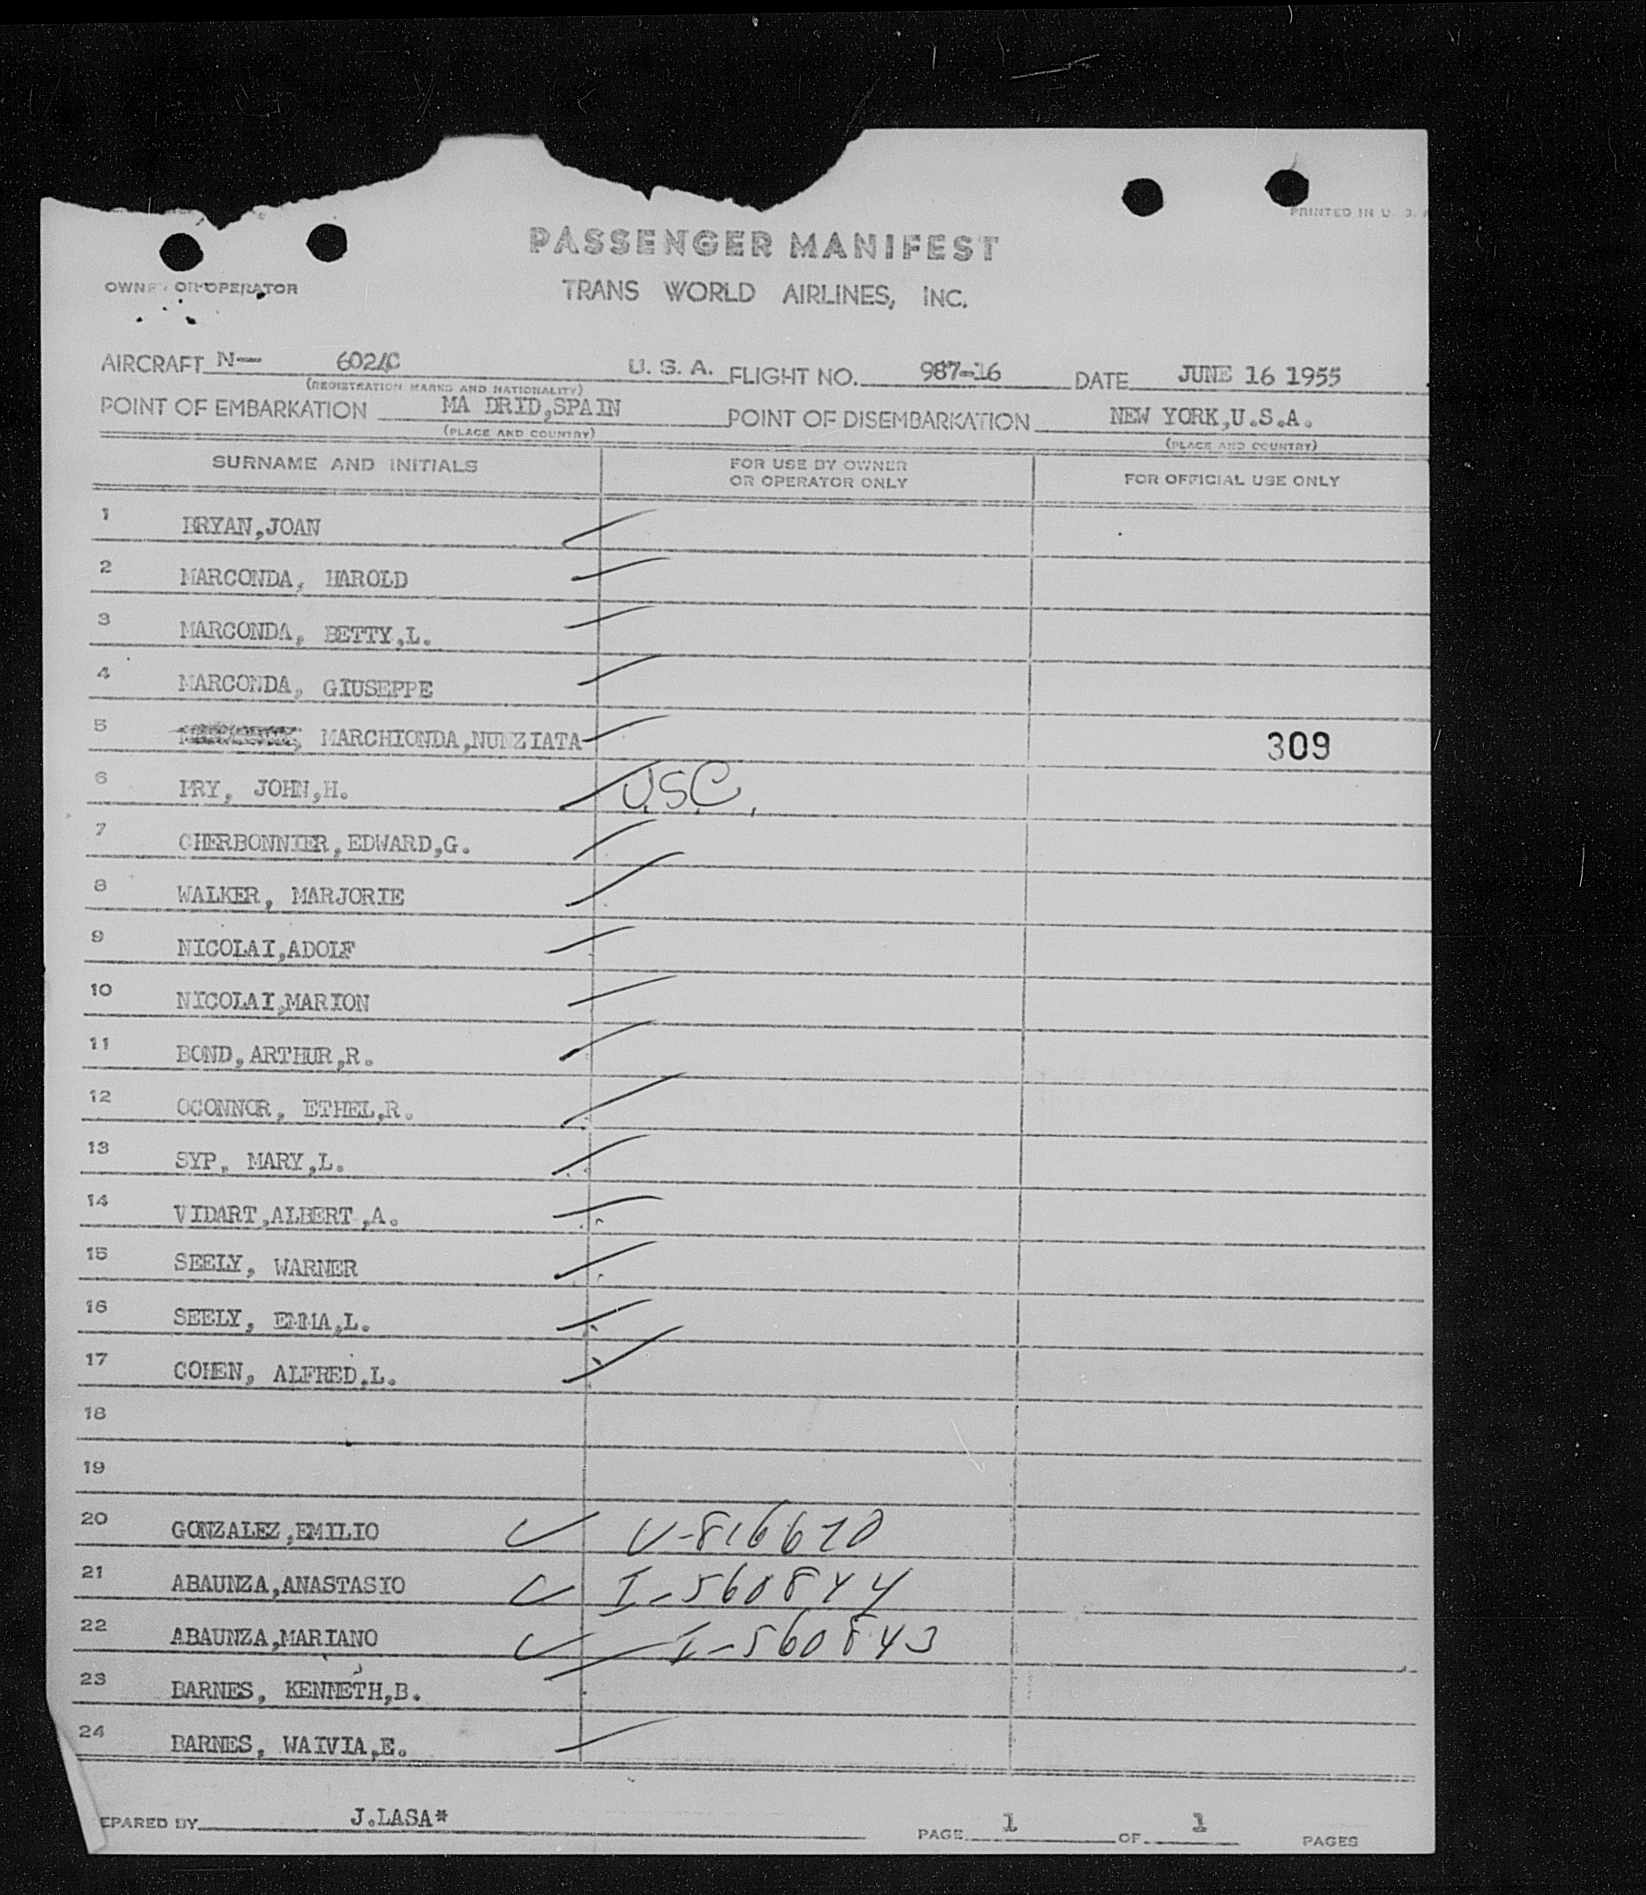 PRINTED IN U. S. A
PASSENGER MANIFEST
OWNER OR OPERATOR
TRANS WORLD AIRLINES, INC.
AIRCRAFT N— 6024C U. S. A. FLIGHT NO. 987-16 DATE JUNE 16 1955
(REGISTRATION MARKS AND NATIONALITY)
POINT OF EMBARKATION MA DRID,SPAIN POINT OF DISEMBARKATION NEW YORK,U.S.A.
(PLACE AND COUNTRY) (PLACE AND COUNTRY)
SURNAME AND INITIALS FOR USE BY OWNER OR OPERATOR ONLY FOR OFFICIAL USE ONLY
1 BRYAN,JOAN
2 MARCONDA, HAROLD
3 MARCONDA, BETTY,L.
4 MARCONDA, GIUSEPPE
5 MARCHIONDA,NUNZIATA 309
6 FRY, JOHN,H. U.S.C.
7 CHERBONNIER,EDWARD,G.
8 WALKER, MARJORIE
9 NICOLAI,ADOLF
10 NICOLAI,MARION
11 BOND,ARTHUR,R.
12 OCONNOR, ETHEL,R.
13 SYP, MARY,L.
14 VIDART,ALBERT,A.
15 SEELY, WARNER
16 SEELY, EMMA,L.
17 COHEN, ALFRED,L.
18
19
20 GONZALEZ,EMILIO V-816670
21 ABAUNZA,ANASTASIO I-560844
22 ABAUNZA,MARIANO I-560843
23 BARNES, KENNETH,B.
24 BARNES, WAIVIA,E.
EPARED BY J.LASA* PAGE 1 OF 1 PAGES